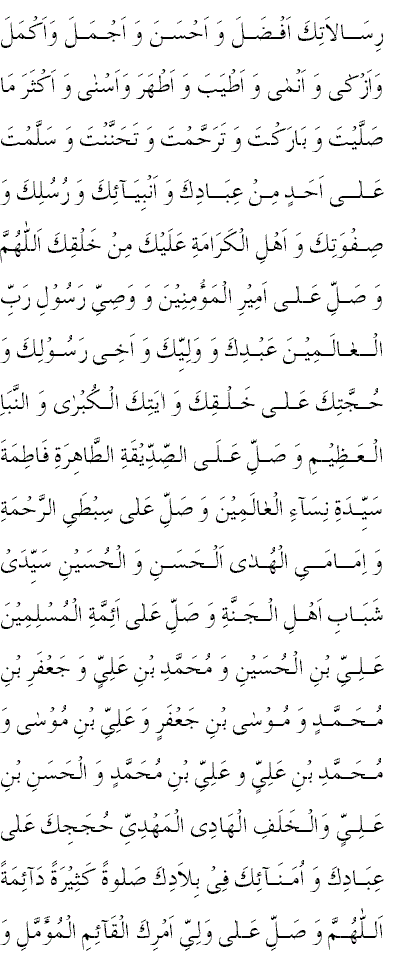 رِسَالَاتِكَ اَفْضَلَ وَ اَحْسَنَ وَ اَجْمَلَ وَاَكْمَلَ
وَاَزْكٰى وَ اَنْمٰى وَ اَطْيَبَ وَ اَطْهَرَ وَاَسْنٰى وَ اَكْثَرَ مَا
صَلَّيْتَ وَ بَارَكْتَ وَ تَرَحَّمْتَ وَ تَحَنَّنْتَ وَ سَلَّمْتَ
عَلٰى اَحَدٍ مِنْ عِبَادِكَ وَ اَنْبِيَآئِكَ وَ رُسُلِكَ وَ
صِفْوَتِكَ وَ اَهْلِ الْكَرَامَةِ عَلَيْكَ مِنْ خَلْقِكَ اَللّٰهُمَّ
وَ صَلِّ عَلٰى اَمِيْرِ الْمَؤْمِنِيْنَ وَ وَصِيِّ رَسُوْلِ رَبِّ
الْعٰالَمِيْنَ عَبْدِكَ وَ وَلِيِّكَ وَ اَخِى رَسُوْلِكَ وَ
حُجَّتِكَ عَلٰى خَلْقِكَ وَ اٰيَتِكَ الْكُبْرٰى وَ النَّبَاِ
الْعَظِيْمِ وَ صَلِّ عَلَى الصِّدِّيْقَةِ الطَّاهِرَةِ فَاطِمَةَ
سَيِّدَةِ نِسَآءِ الْعٰالَمِيْنَ وَ صَلِّ عَلٰى سِبْطَيِ الرَّحْمَةِ
وَ اِمَامَىِ الْهُدٰى اَلْحَسَنِ وَ الْحُسَيْنِ سَيِّدَىْ
شَبَابِ اَهْلِ الْجَنَّةِ وَ صَلِّ عَلٰى اَئِمَّةِ الْمُسْلِمِيْنَ
عَلِىِّ بْنِ الْحُسَيْنِ وَ مُحَمَّدِ بْنِ عَلِىٍّ وَ جَعْفَرِ بْنِ
مُحَمَّدٍ وَ مُوْسٰى بْنِ جَعْفَرٍ وَ عَلِىِّ بْنِ مُوْسٰى وَ
مُحَمَّدِ بْنِ عَلِىٍّ و عَلِىِّ بْنِ مُحَمَّدٍ وَ الْحَسَنِ بْنِ
عَلِىٍّ وَالْخَلَفِ الْهَادِى الْمَهْدِىِّ حُجَجِكَ عَلٰى
عِبَادِكَ وَ اُمَنَآئِكَ فِىْ بِلَادِكَ صَلٰوةً كَثِيْرَةً دَآئِمَةً
اَللّٰهُمَّ وَ صَلِّ عَلٰى وَلِىِّ اَمْرِكَ الْقَآئِمِ الْمُؤَمَّلِ وَ